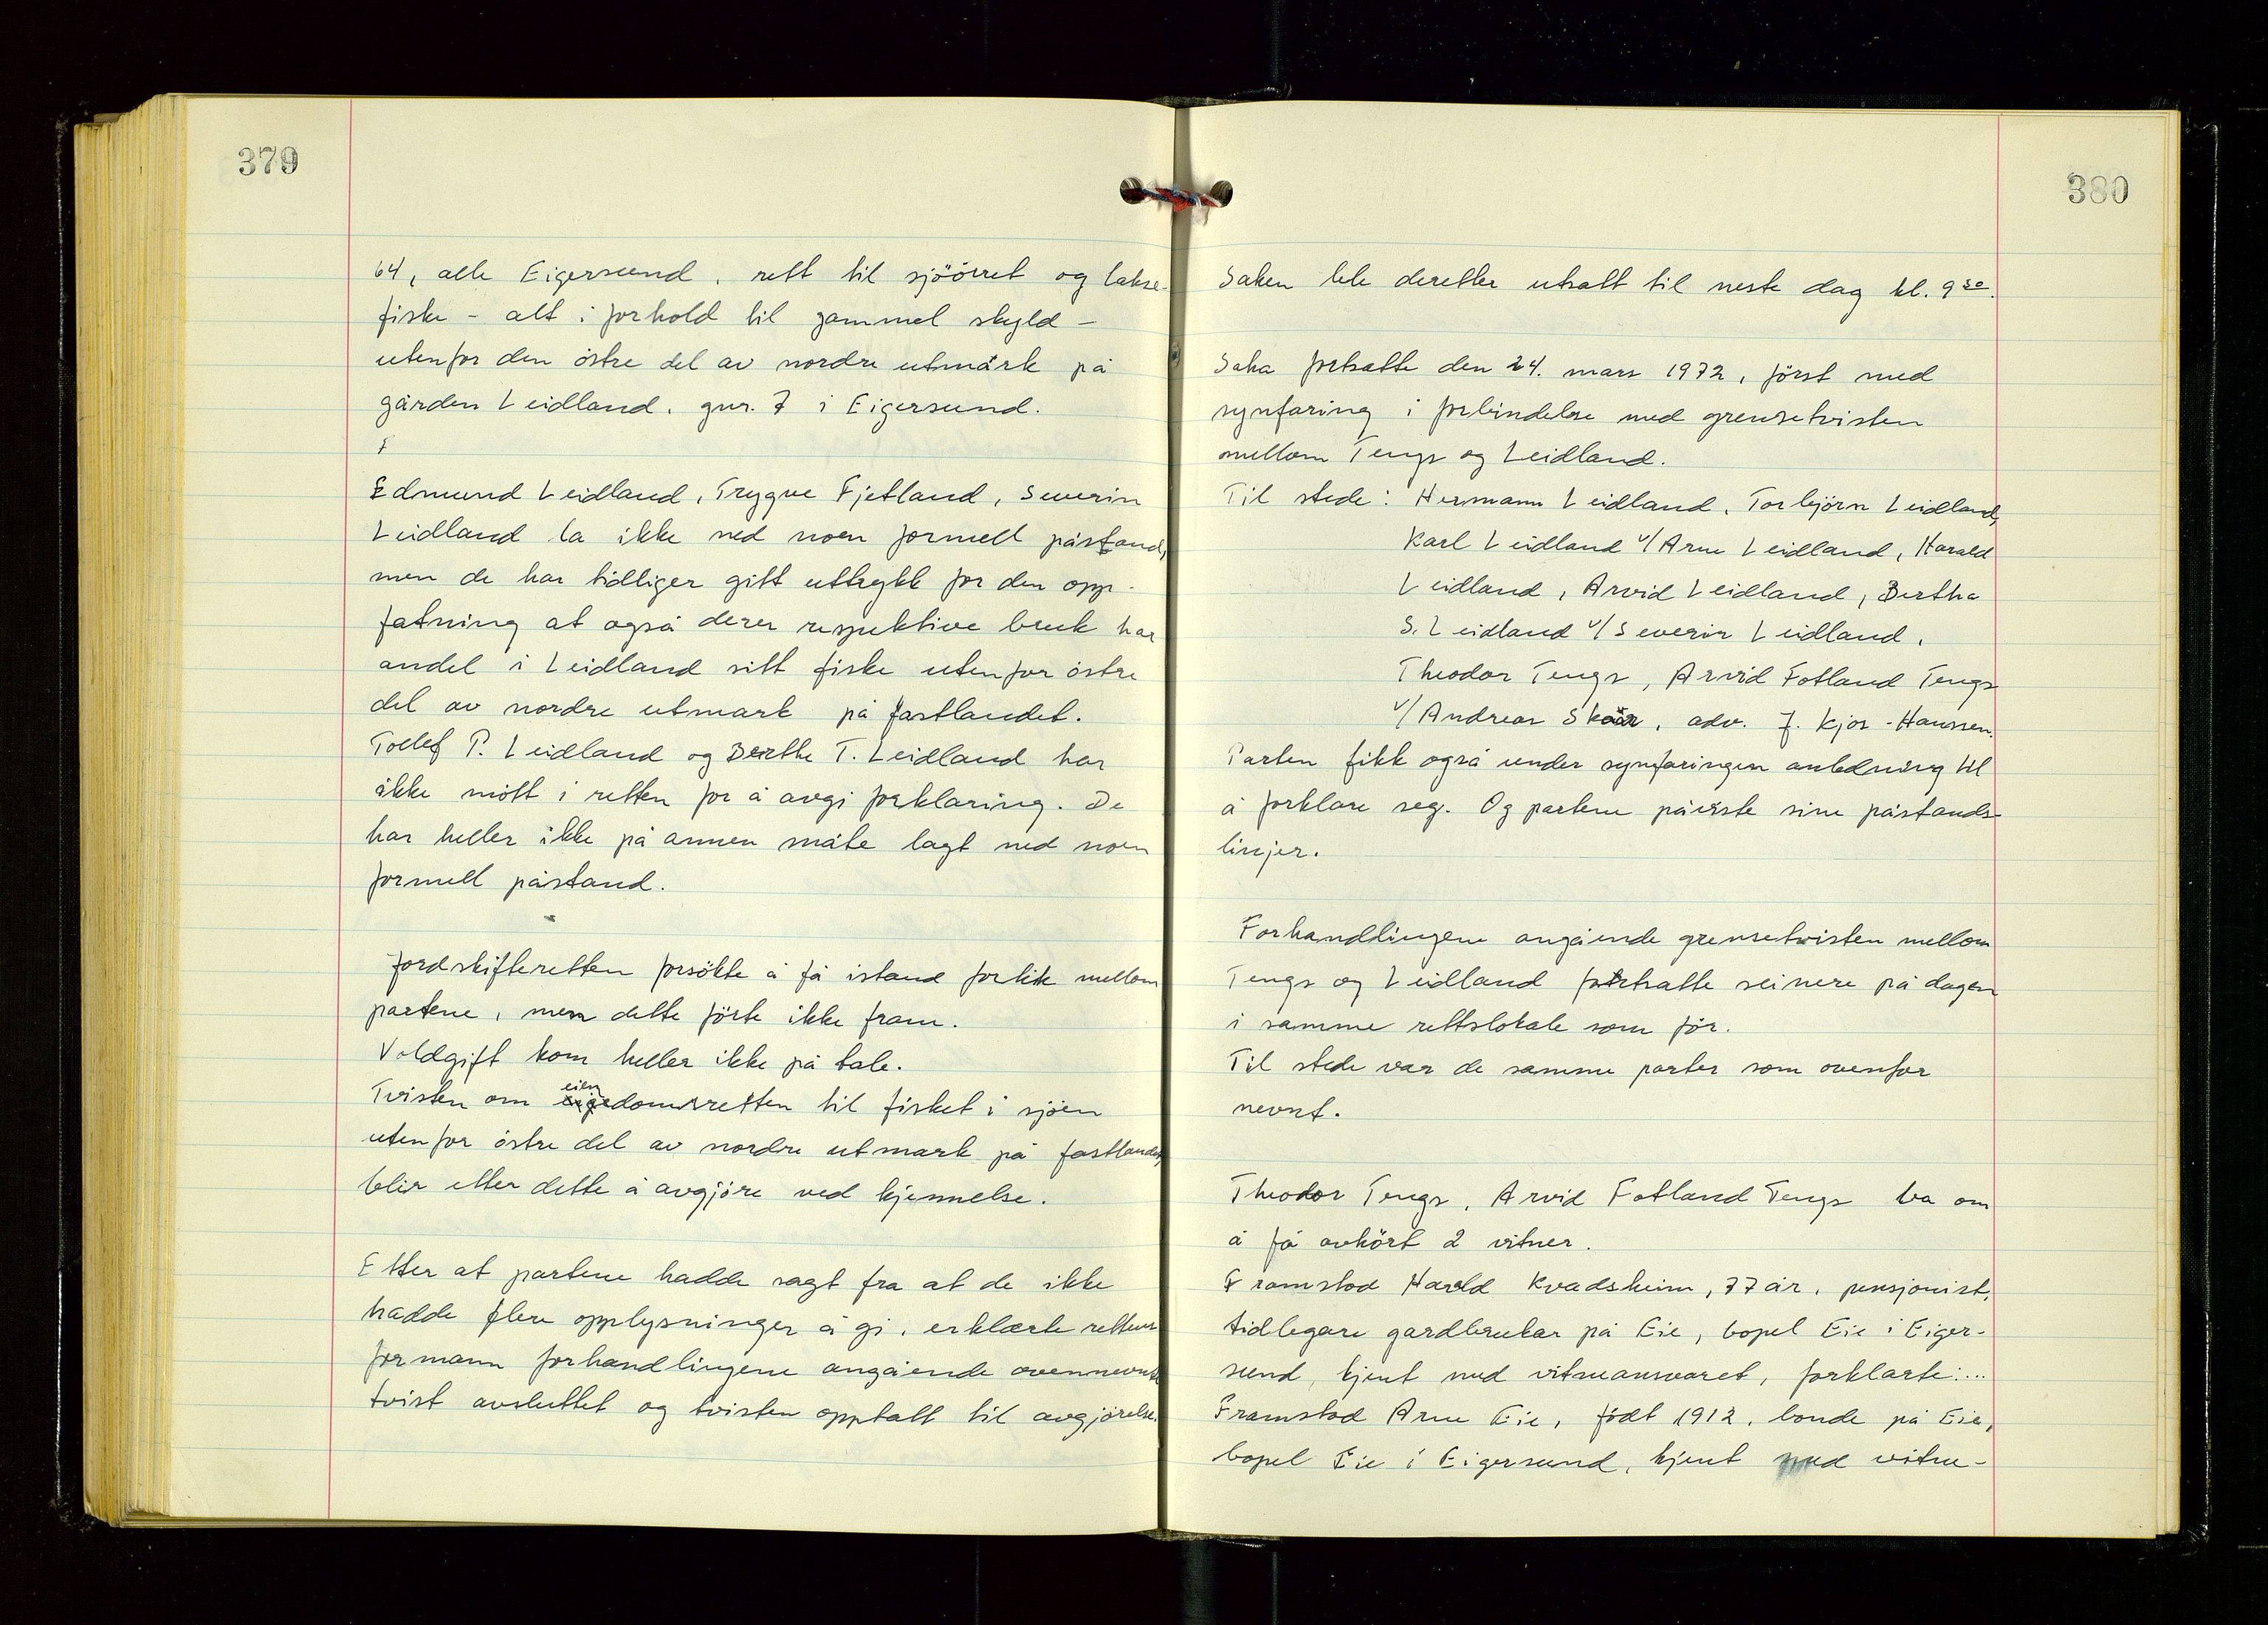 379
64, alle Eigersund, rett til sjöörret og lakse-
fiske - alt i forhold til gammel skyld -
utenfor den östre del av nordre utmark på
gården Leidland, gnr. 7 i Eigersund.
Edmund Leidland, Trygve Fjetland, Severin
Leidland la ikke ned noen formell påstand,
men de har tidliger gitt uttrykk for den opp-
fatning at også deres respektive bruk har
andel i Leidland sitt fiske utenfor östre
del av nordre utmark på fastlandet.
Tollef P. Leidland og Berthe T. Leidland har
ikke mött i retten for å avgi forklaring. De
har heller ikke på annen måte lagt ned noen
formell påstand.
Jordskifteretten forsökte å få istand forlik mellom
partene, men dette förte ikke fram.
Voldgift kom heller ikke på tale.
Tvisten om eiendomsretten til fisket i sjöen
utenfor östre del av nordre utmark på fastlandet,
blir etter dette å avgjöre ved kjennelse.
Etter at partene hadde sagt fra at de ikke
hadde flere opplysninger å gi, erklærte rettens
formann forhandlingene angående ovennevnte
tvist avsluttet og tvisten opptatt til avgjörelse.
380
Saken ble deretter utsatt til neste dag kl. 9 30.
Saka fortsatte den 24. mars 1972, först med
synfaring i forbindelse med grensetvisten
mellom Tengs og Leidland.
Til stede: Hermann Leidland, Torbjörn Leidland,
Karl Leidland v/Arne Leidland, Harald
Leidland, Arvid Leidland, Bertha
S. Leidland v/Severin Leidland,
Theodor Tengs, Arvid Fotland Tengs
v/Andreas Skår, adv. J. Kjos-Hanssen.
Parten fikk også under synfaringen anledning til
å forklare seg. Og partene påviste sine påstands-
linjer.
Forhandlingene angående grensetvisten mellom
Tengs og Leidland fortsatte seinere på dagen
i samme rettslokale som för.
Til stede var de samme parter som ovenfor
nevnt.
Theodor Tengs, Arvid Fotland Tengs ba om
å få avhört 2 vitner.
Framstod Harald Kvadsheim, 77 år, pensjonist,
tidlegare gardbrukar på Eie, bopel Eie i Eiger-
sund, kjent med vitneansvaret, forklarte:...
Framstod Arne Eie, födt 1912, bonde på Eie,
bopel Eie i Eigersund, kjent med vitne-